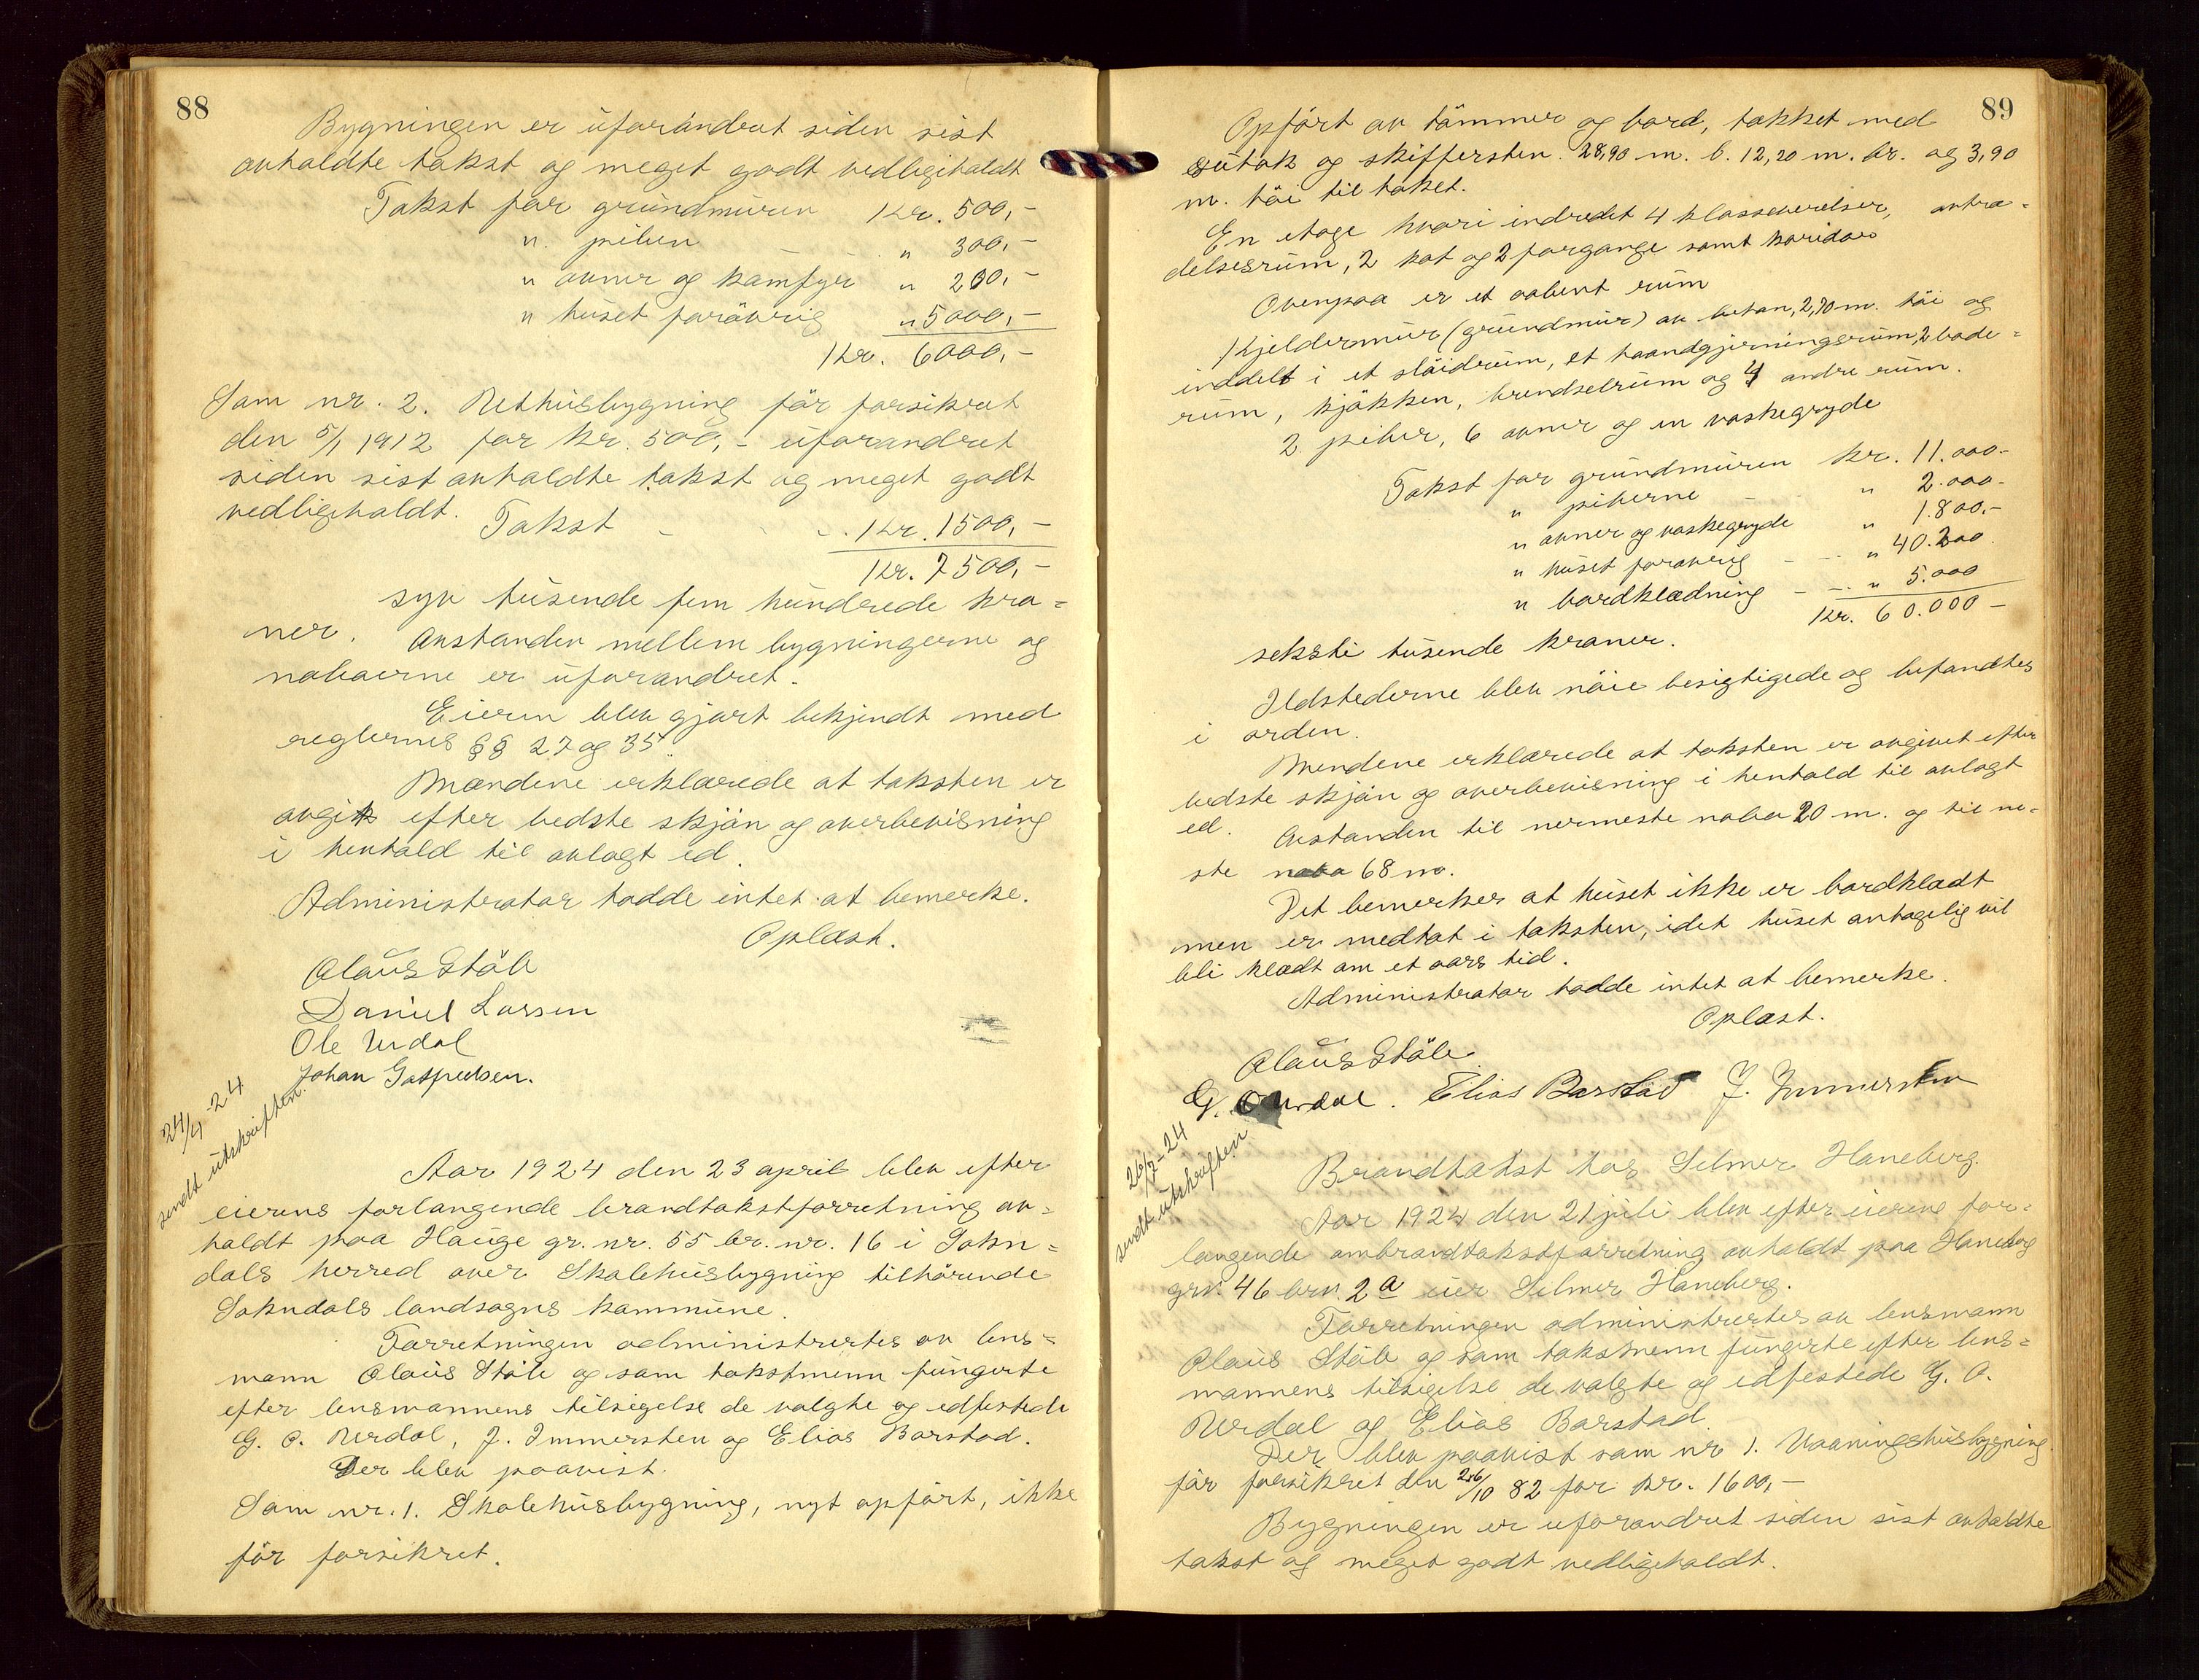 88
Bygningen er uforandret siden sist
avholdte takst og meget godt vedligeholdt
Takst for grundmuren Kr. 500,-
" piben - " 300,-
" ovner og kamfyr " 200,-
" huset forøvrig " 5000,-
Kr. 6000,-
Som nr. 2. Uthusbygning før forsikret
den 5/1 1912 for kr. 500,- uforandret
siden sist avholdte takst og meget godt
vedligeholdt. Takst - - Kr. 1500,-
Kr. 7500,-
syv tusende fem hundrede kro=
ner. Avstanden mellem bygningerne og
naboerne er uforandret.
Eieren blev gjort bekjendt med
reglernes §§ 27 og 35.
Mændene erklærede at taksten er
avgit efter bedste skjøn og overbevisning
i henhold til avlagt ed.
Administrator hadde intet at bemerke.
Oplæst.
Olaus Støle
Daniel Larssen
Ole Urdal
Johan Gotfredsen.
24/4-24
sendt utskriften.
Aar 1924 den 23 april blev efter
eierens forlangende brandtakstforretning av=
holdt paa Hauge gr. nr. 55 br. nr. 16 i Sokn=
dals herred over Skolehusbygning tilhørende
Sokndals landsogns kommune.
Forretningen administrertes av lens=
mann Olaus Støle og som takstmenn fungerte
efter lensmannens tilsigelse de valgte og edfestede
G. O. Urdal, J. Immersten og Elias Barstad.
Der blev paavist.
Som nr. 1. Skolehusbygning, nyt opført, ikke
før forsikret.
89
Opført av tømmer og bord, takket med
sutak og skiffersten. 28,90 m. l. 12,20 m. br. og 3,90
m. høi til taket.
En etage hvori indredet 4 klasseværelser, antræ=
delsesrum, 2 kot og 2 forgange samt koridor
Ovenpaa er et aabent rum
Kjeldermur (grundmur) av beton, 2,70 m. høi og
inddelt i et sløidrum, et haandgjerningsrum, 2 bade=
rum, kjøkken, brendselrum og 4 andre rum.
2 piber, 6 ovner og en vaskegryde
Takst for grundmuren kr. 11.000-
" piberne - " 2.000-
" ovner og vaskegryde " 1.800,-
" huset forøvrig - - " 40.200.
" bordklædning - - " 5.000
Kr. 60.000-
seksti tusende kroner.
Ildstederne blev nøie besigtigede og befandtes
i orden.
Mendene erklærede at taksten er avgivet efter
bedste skjøn og overbevisning i henhold til avlagt
ed. Avstanden til nermeste nabo 20 m. og til ne=
ste nabo 68 m.
Det bemerkes at huset ikke er bordklædt
men er medtat i taksten, idet huset antagelig vil
bli klædt om et aars tid.
Administrator hadde intet at bemerke.
Oplæst.
Olaus Støle
G. O Urdal. Elias Barstad J. Immersten
26/7-24
sendt utskriften
Brandtakst hos Selmer Haneberg.
Aar 1924 den 21 juli blev efter eierens for=
langende ombrandtakstforretning avholdt paa Haneberg
grn. 46 brn. 2a eier Selmer Haneberg.
Forretningen administrertes av lensmann
Olaus Støle og som takstmenn fungerte efter lens=
mannens tilsigelse de valgte og edfestede G. O.
Urdal og Elias Barstad.
Der blev paavist som nr 1. Vaaningshusbygning
før forsikret den 26/10 82 for kr. 1600,-
Bygningen er uforandret siden sist avholdte
takst og meget godt vedligeholdt.